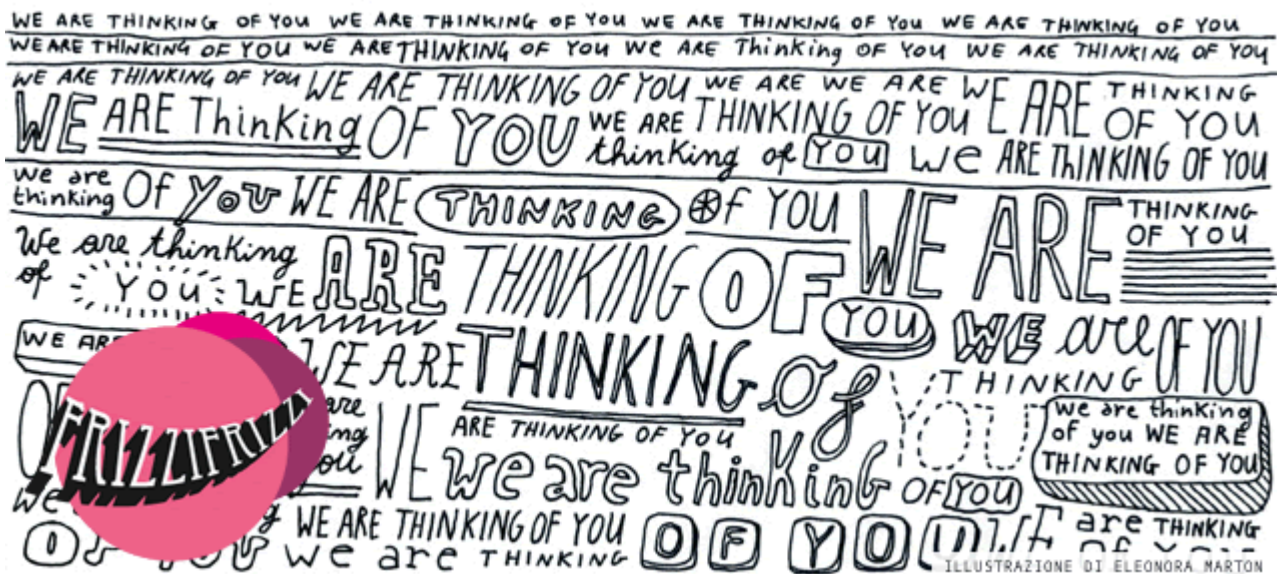 WE ARE THINKING OF YOU WE ARE THINKING OF YOU WE ARE THINKING OF YOU WE ARE THINKING OF YOU
WE ARE THINKING OF YOU WE ARE THINKING OF YOU We ARE Thinking OF YOU WE ARE THINKING OF YOU
WE ARE THINKING OF YOU WE ARE THINKING OF YOU WE ARE WE ARE WE ARE THINKING
WE ARE ThinKing OF YOU WE ARE THINKING OF YOU OF YOU
thinking of YOU we ARE THINKING OF YOU
we are
thinking OF YOU WE ARE THINKING OF YOU WE ARE THINKING
OF YOU
We are thinKing
of YOU WE ARE THINKING OF YOU
WE ARE WE ARE THINKING of YOU WE are OF YOU
THINKING
are WE ARE THINKING OF YOU
we are thinKinG OF YOU
we are thinking
of you WE ARE
THINKING OF YOU
FRIZZIFRIZZI
WE ARE THINKING OF YOU OF YOU WE are THINKING
OF YOU we are THINKING
ILLUSTRAZIONE DI ELEONORA MARTON